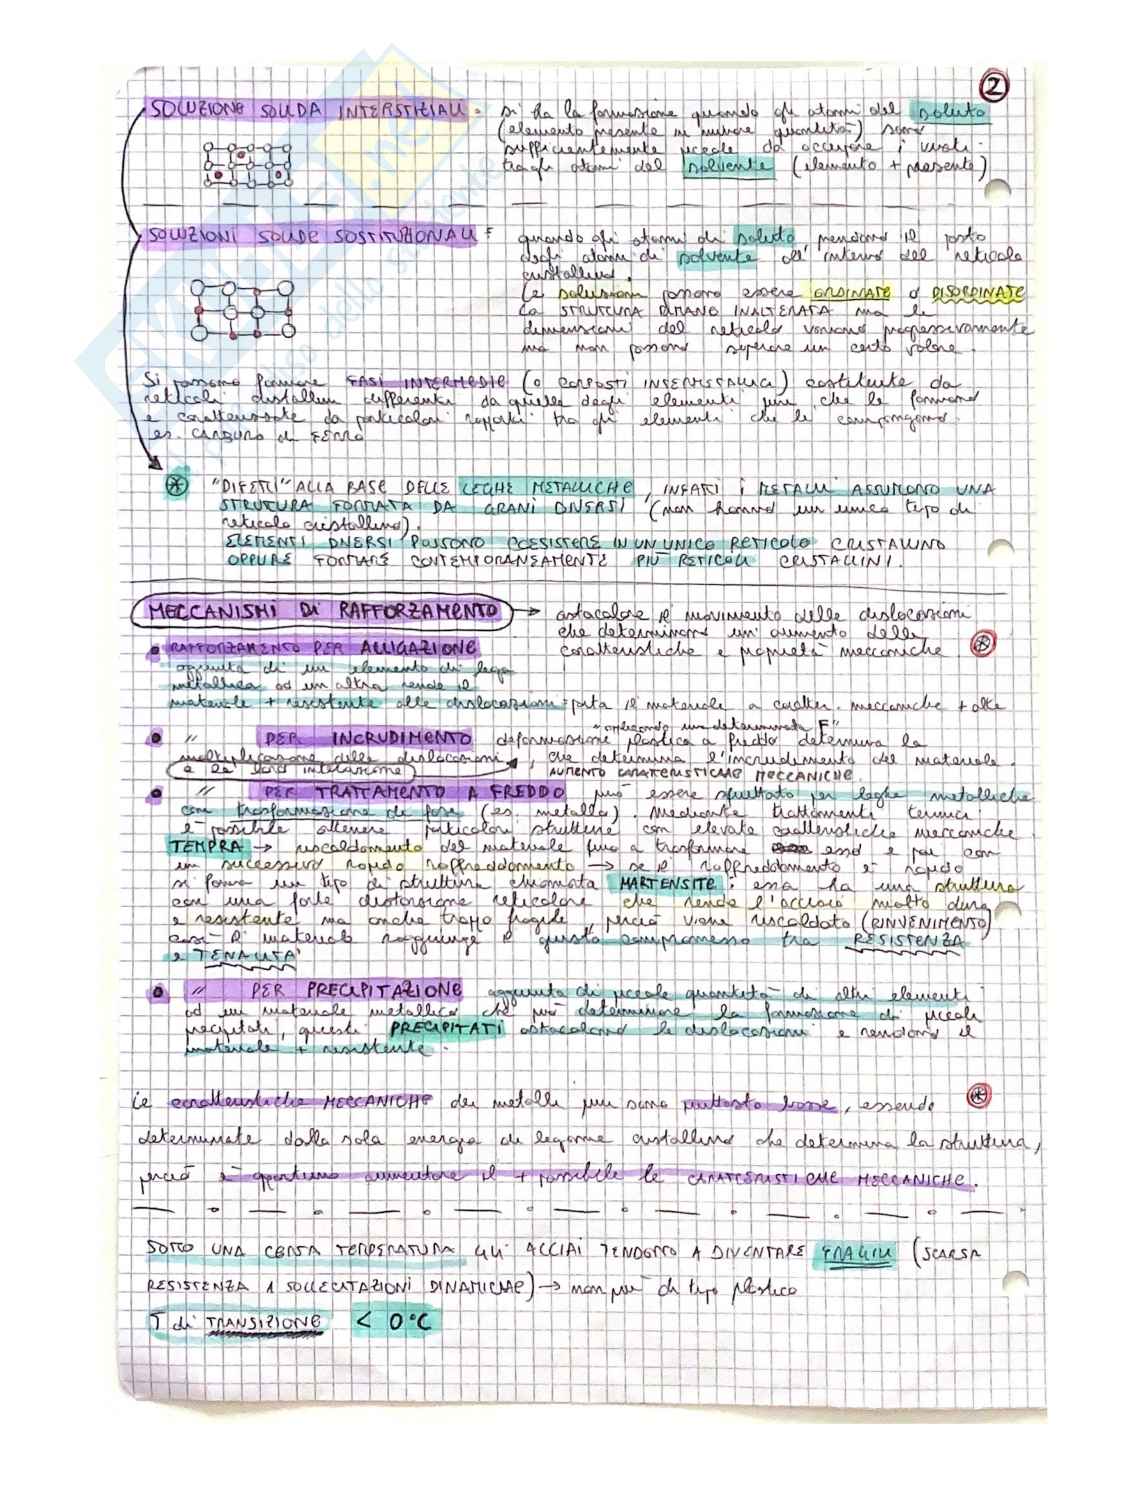 2
SOLUZIONE SOLIDA INTERSTIZIALI = si ha la formazione quando gli atomi del soluto
(elemento presente in minore quantità) sono
sufficientemente piccole da occupare i vuoti
tra gli atomi del solvente (elemento + presente)
SOLUZIONI SOLIDE SOSTITUZIONALI = quando gli atomi di soluto prendono il posto
degli atomi di solvente all'interno del reticolo
cristallino.
Le soluzioni possono essere ORDINATE o DISORDINATE
LA STRUTTURA RIMANE INALTERATA ma le
dimensioni del reticolo variano progressivamente
ma non possono superare un certo valore.
Si possono formare FASI INTERMEDIE (o COMPOSTI INTERMETALLICI) costituite da
reticoli cristallini differenti da quelle degli elementi puri che le formano
e caratterizzate da particolari rapporti tra gli elementi che le compongono.
es. CARBURO di FERRO
* "DIFETTI" ALLA BASE DELLE LEGHE METALLICHE, INFATTI i METALLI ASSUMONO UNA
STRUTTURA FORMATA DA GRANI DIVERSI (non hanno un unico tipo di
reticolo cristallino).
ELEMENTI DIVERSI POSSONO COESISTERE IN UN UNICO RETICOLO CRISTALLINO
OPPURE FORMARE CONTEMPORANEAMENTE PIÙ RETICOLI CRISTALLINI.
MECCANISMI DI RAFFORZAMENTO → ostacolare il movimento delle dislocazioni
che determinano un aumento delle
caratteristiche e proprietà meccaniche *
• RAFFORZAMENTO PER ALLIGAZIONE
aggiunta di un elemento di lega
metallica ad un altra rende il
materiale + resistente alle dislocazioni = porta il materiale a caratter. meccaniche + alte
"applicando una determinata F"
• " PER INCRUDIMENTO deformazione plastica a freddo determina la
moltiplicazione delle dislocazioni, che determina l'incrudimento del materiale.
e la loro interazione AUMENTO CARATTERISTICHE MECCANICHE.
• " PER TRATTAMENTO A FREDDO può essere sfruttato per leghe metalliche
con trasformazione di fase (es. metallo). Mediante trattamenti termici
è possibile ottenere particolari strutture con elevate caratteristiche meccaniche
TEMPRA → riscaldamento del materiale fino a trasformare esso e poi con
un successivo rapido raffreddamento → se il raffreddamento è rapido
si forma un tipo di struttura chiamata MARTENSITE: essa ha una struttura
con una forte distorsione reticolare che rende l'acciaio molto duro
e resistente ma anche troppo fragile, perciò viene riscaldato (RINVENIMENTO)
così il materiale raggiunge il giusto compromesso tra RESISTENZA
e TENACITÀ
• " PER PRECIPITAZIONE aggiunta di piccole quantità di altri elementi
ad un materiale metallico che può determinare la formazione di piccoli
precipitati, questi PRECIPITATI ostacolano le dislocazioni e rendono il
materiale + resistente.
Le caratteristiche MECCANICHE dei metalli puri sono piuttosto basse, essendo *
determinate dalla sola energia di legame cristallino che determina la struttura,
perciò è opportuno aumentare il + possibile le CARATTERISTICHE MECCANICHE.
SOTTO UNA CERTA TEMPERATURA GLI ACCIAI TENDONO A DIVENTARE FRAGILI (SCARSA
RESISTENZA A SOLLECITAZIONI DINAMICHE) → non più di tipo plastico
T di TRANSIZIONE < 0°C